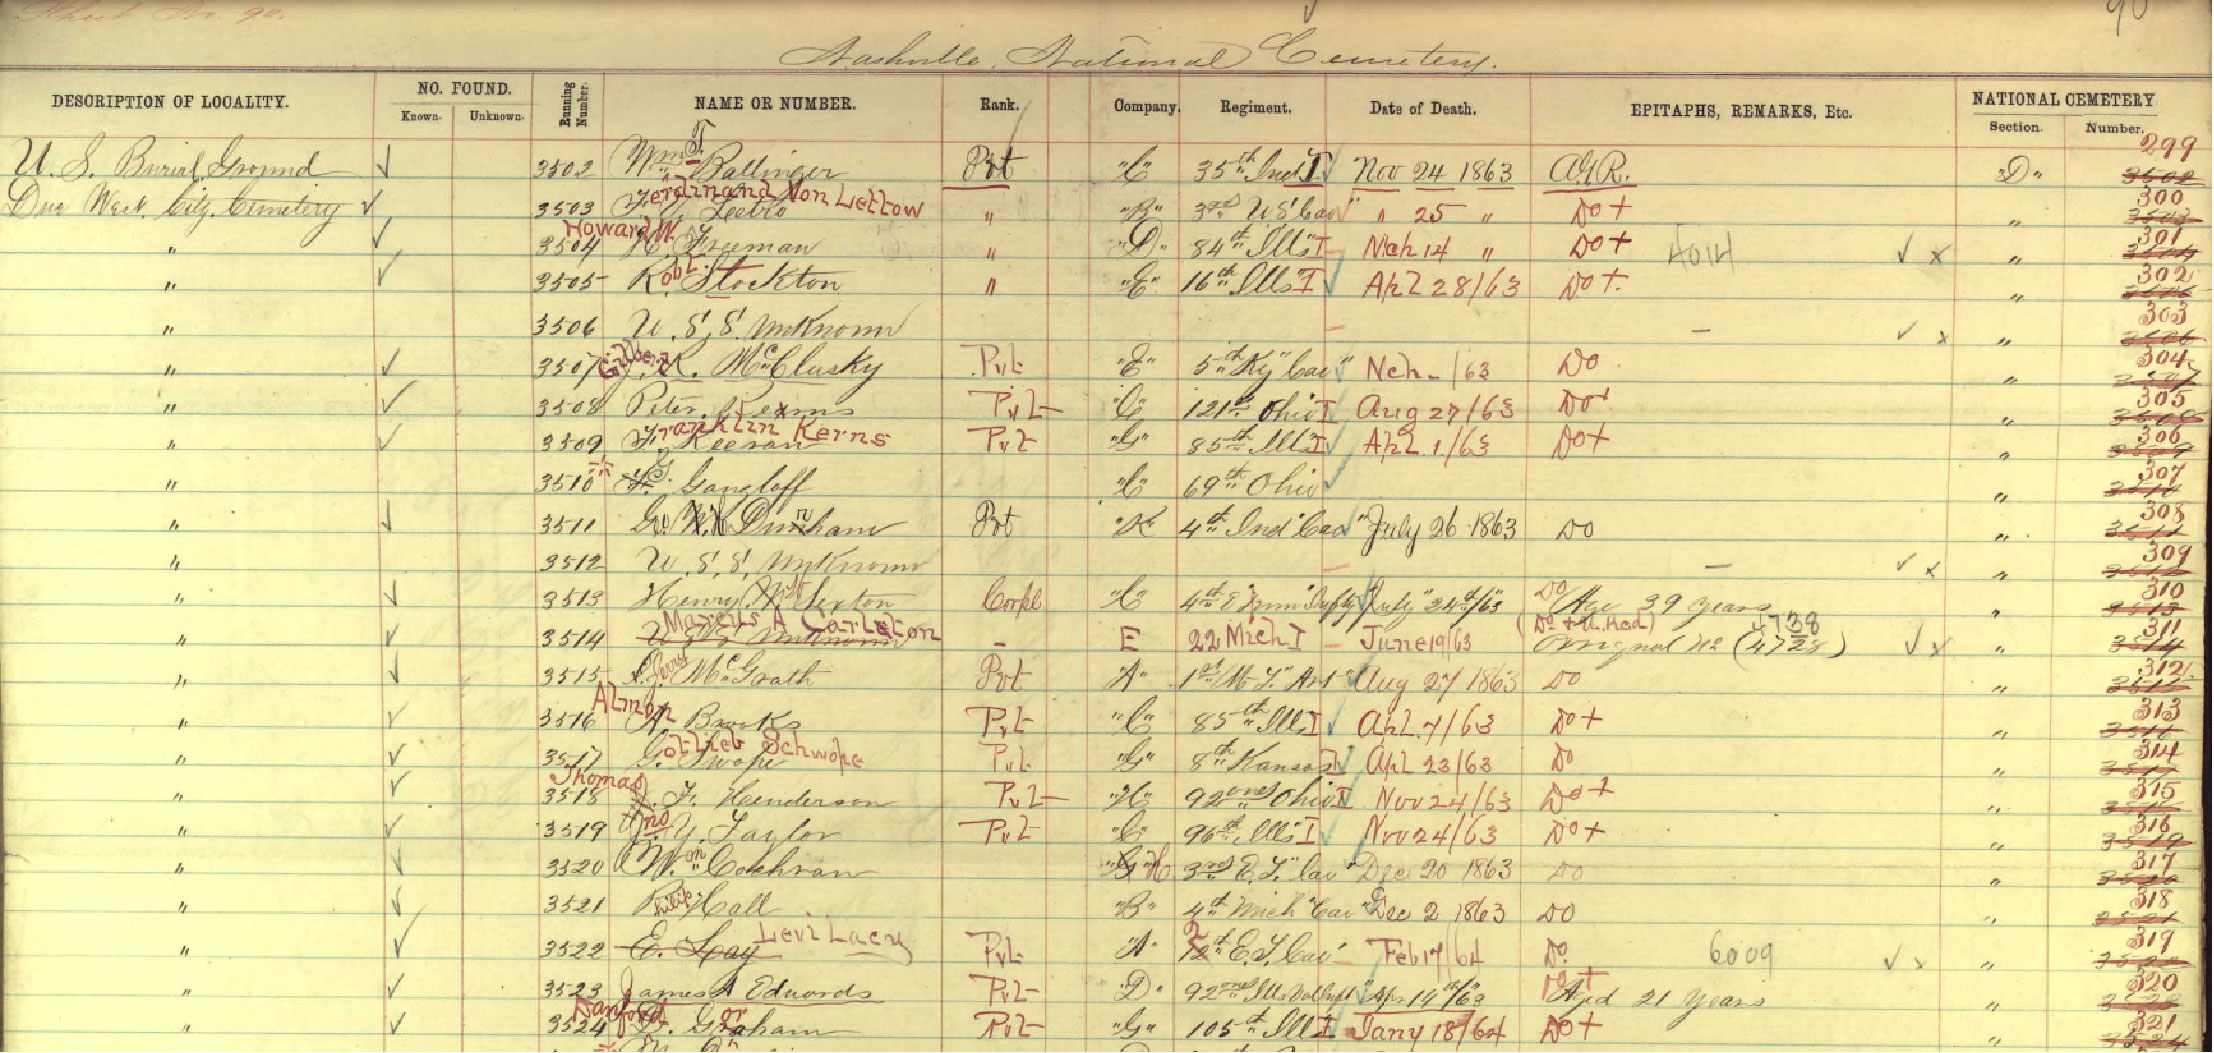 Sheet No. 90.
90
Nashville National Cemetery.
DESCRIPTION OF LOCALITY. NO. FOUND. Known. Unknown. Running Number. NAME OR NUMBER. Rank. Company. Regiment. Date of Death. EPITAPHS, REMARKS, Etc. NATIONAL CEMETERY Section. Number.
U. S. Burial Ground ✓ 3502 Wm T. Ballinger Pvt "C" 35th Ind I Nov 24 1863 A.G.R. "D" 299 3502
City Cemetery ✓ 3503 Ferdinand Von Lettow " "B" 3rd U S Cav " " 25 " Do + " 300 3503
" ✓ 3504 Howard W. Freeman " "D" 84th Ills I Mch 14 " Do + 4014 ✓ x " 301 3504
" ✓ 3505 Robt. Stockton " "E" 16th Ills I Apl 28/63 Do +. " 302
" 3506 U. S. S. Unknown – – ✓ x " 303 3506
" ✓ 3507 R. McClusky Pvt "E" 5th Ky Cav " Mch – /63 Do " 304 3507
" ✓ 3508 Peter Pvt "C" 121st Ohio I Aug 27/63 Do + " 305 3508
" ✓ 3509 Franklin Kerns Keenan Pvt "G" 85th Ills I Apl. 1/63 Do + " 306 3509
" 3510 * Gangloff "C" 69th Ohio " 307 3510
" ✓ 3511 Dunham Pvt "K" 4th Ind Cav " July 26 1863 Do " 308 3511
" 3512 U. S. S. Unknown – – ✓ x " 309 3512
" ✓ 3513 Henry Sexton Corpl "C" 4th E Tenn Infty July 24th/63 Do Age 39 years " 310 3513
" ✓ 3514 Marcus A Carleton U S S Unknown – E 22 Mich I – June 19/63 (Do + U. Rod) Original No (4728) 4738 ✓ x " 311 3514
" ✓ 3515 McGrath Pvt "A" 1st M. T. Art " Aug 27 1863 Do " 312 3515
" ✓ 3516 Almon A. Brooks Pvt "C" 85th Ill I Apl. 7/63 Do + " 313 3516
" ✓ 3517 Gottlieb Schwope G. Swope Pvt "G" 8th Kansas I Apl 23/63 Do " 314 3517
" ✓ 3518 Thomas F. Henderson Pvt "H" 92ond Ohio I Nov 24/63 Do + " 315
" ✓ 3519 Jno. Y. Taylor Pvt "C" 96th Ills I Nov 24/63 Do + " 316 3519
" ✓ 3520 Wm Cochran "G" H 3rd E. T. Cav " Dec 20 1863 Do " 317 3520
" ✓ 3521 Philip Hall "B" 4th Mich Cav " Dec 2 1863 Do " 318 3521
" ✓ 3522 E. Lay Levi Lacy Pvt "A" E. T. Cav Feb 17/64 Do. 6009 ✓ x " 319 3522
" ✓ 3523 James A Edwards Pvt "D" 92ond Ills Vol Inft Apr 14th/63 Do + Aged 21 years " 320 3523
" ✓ 3524 Danford D. Graham Pvt "G" 105th Ill I Jany 18/64 Do + " 321 3524